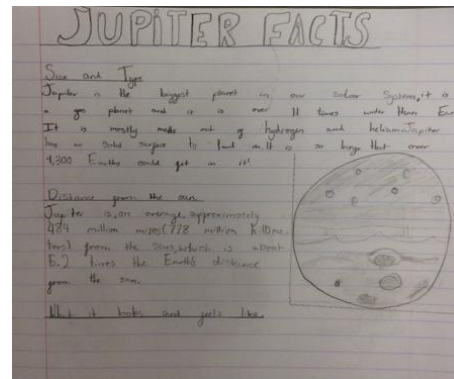 JUPITER FACTS
Size and Type
Jupiter is the biggest planet in our solar System, it is
a gas planet and it is over 11 times wider than
It is mostly made out of hydrogen and helium. Jupiter
has no solid surface to land on. It is so large that over
1,300 Earths could get in it!
Distance from the sun
Jupiter is, on average, approximately
484 million miles (778 million
from the sun, which is about
5.2 times the Earth's distance
from the sun.
What it looks and feels like